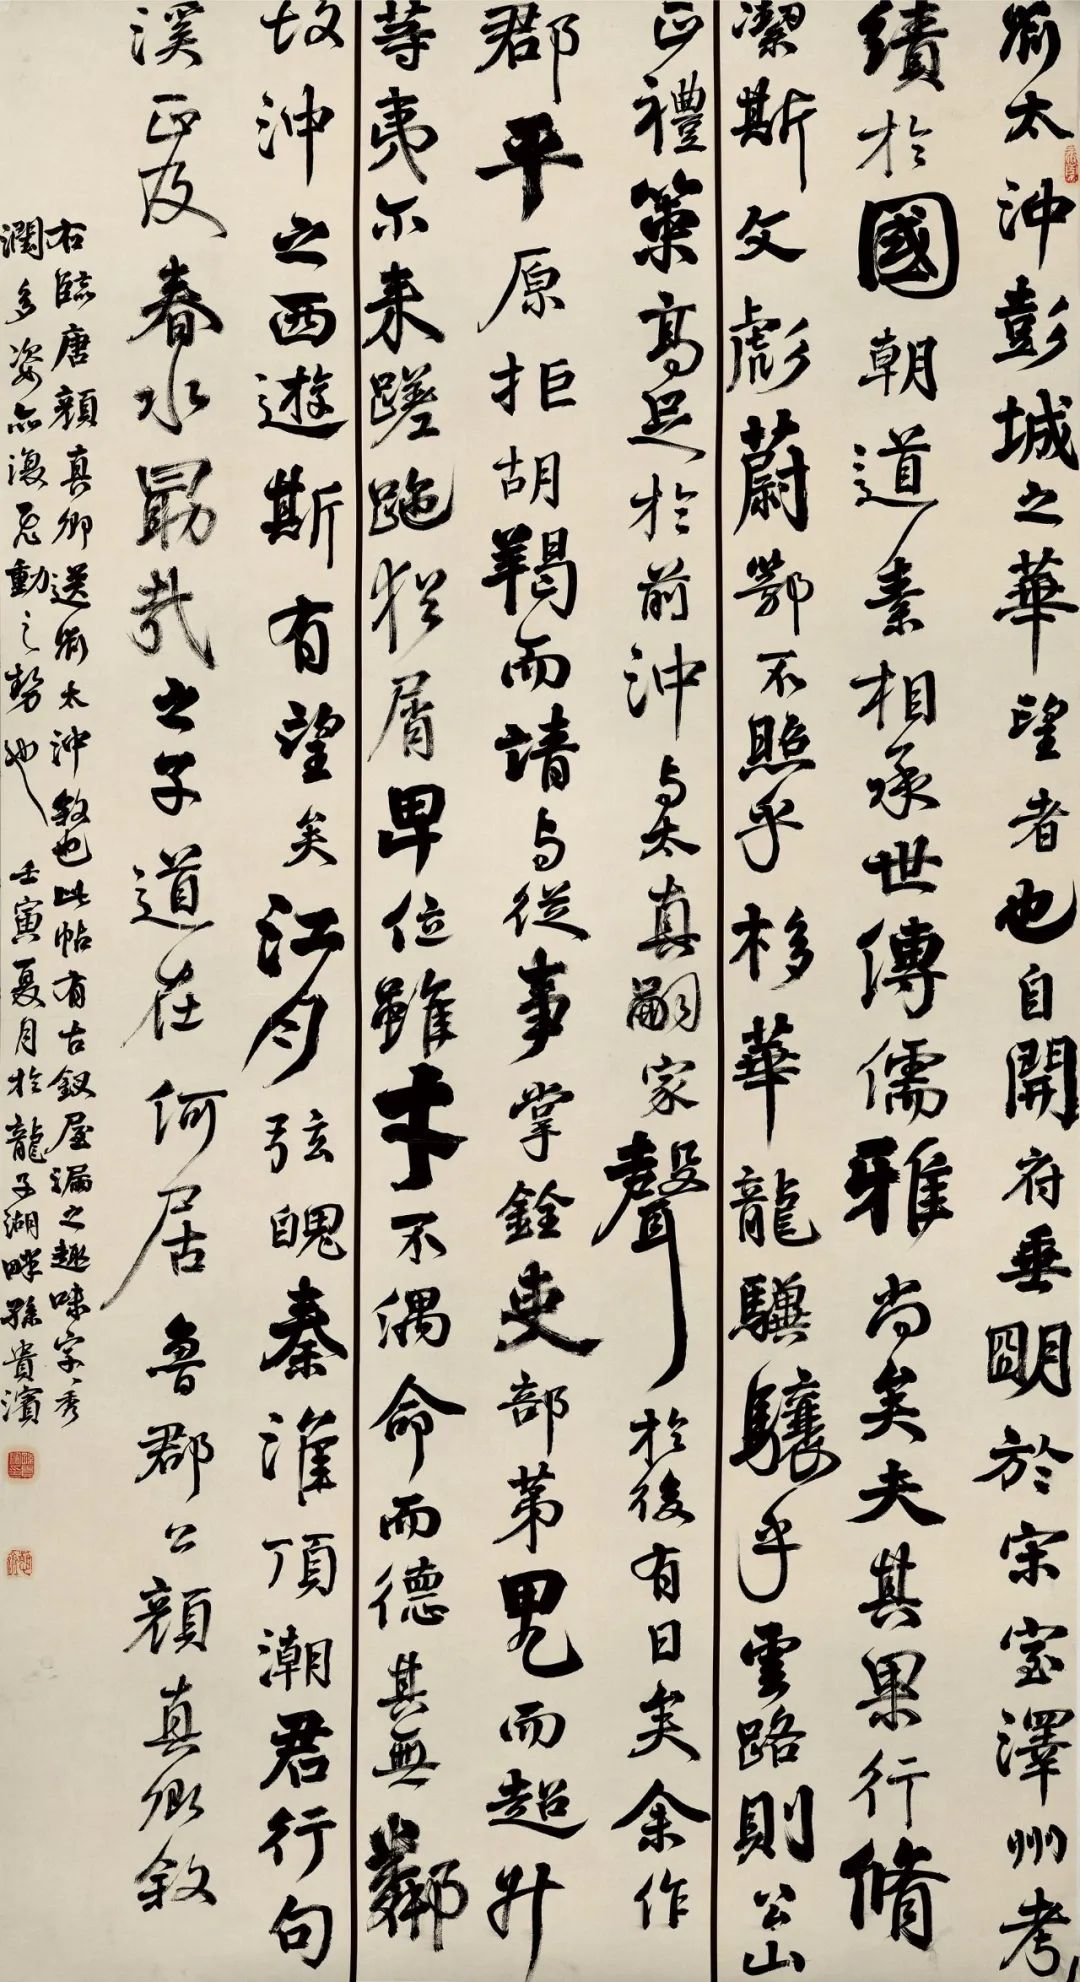 劉太沖彭城之華望者也自開府垂明於宋室澤州考
績於國朝道素相承世傳儒雅尚矣夫其果行脩
潔斯文彪蔚鄂不照乎移華龍驥驤乎雲路則公山
正禮策高足於前沖與太真嗣家聲於後有日矣余作
郡平原拒胡羯而請与從事掌銓吏部第甲而超升
等夷尔来蹉跎猶屑卑位雖才不偶命而德其無鄰
故沖之西遊斯有望矣江月弦魄秦淮頂潮君行句
溪正及春水勗哉之子道在何居魯郡公顔真卿敘
右臨唐顔真卿送劉太沖敘也此帖有古釵屋漏之趣味字字秀
潤多姿亦復飛動之勢也 壬寅夏月於龍子湖畔孫貴濱